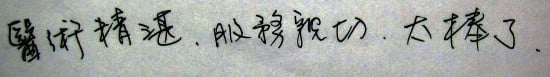 醫術精湛.服務親切.太棒了.